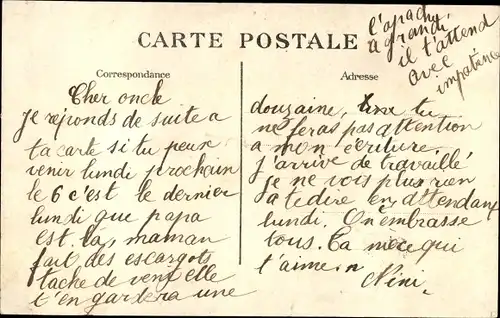 l'apache
a grandi,
il t'attend
avec
impatience
CARTE POSTALE
Correspondance
Adresse
Cher oncle
je réponds de suite a
ta carte si tu peux
venir lundi prochain
le 6 c'est le dernier
lundi que papa
est là, maman
fait des escargots
tache de venir elle
t'en gardera une
douzaine, tu
ne feras pas attention
a mon écriture,
j'arrive de travaillé
je ne vois plus rien
a te dire en attendant
lundi. On embrasse
tous. Ta niece qui
t'aime.
Nini.